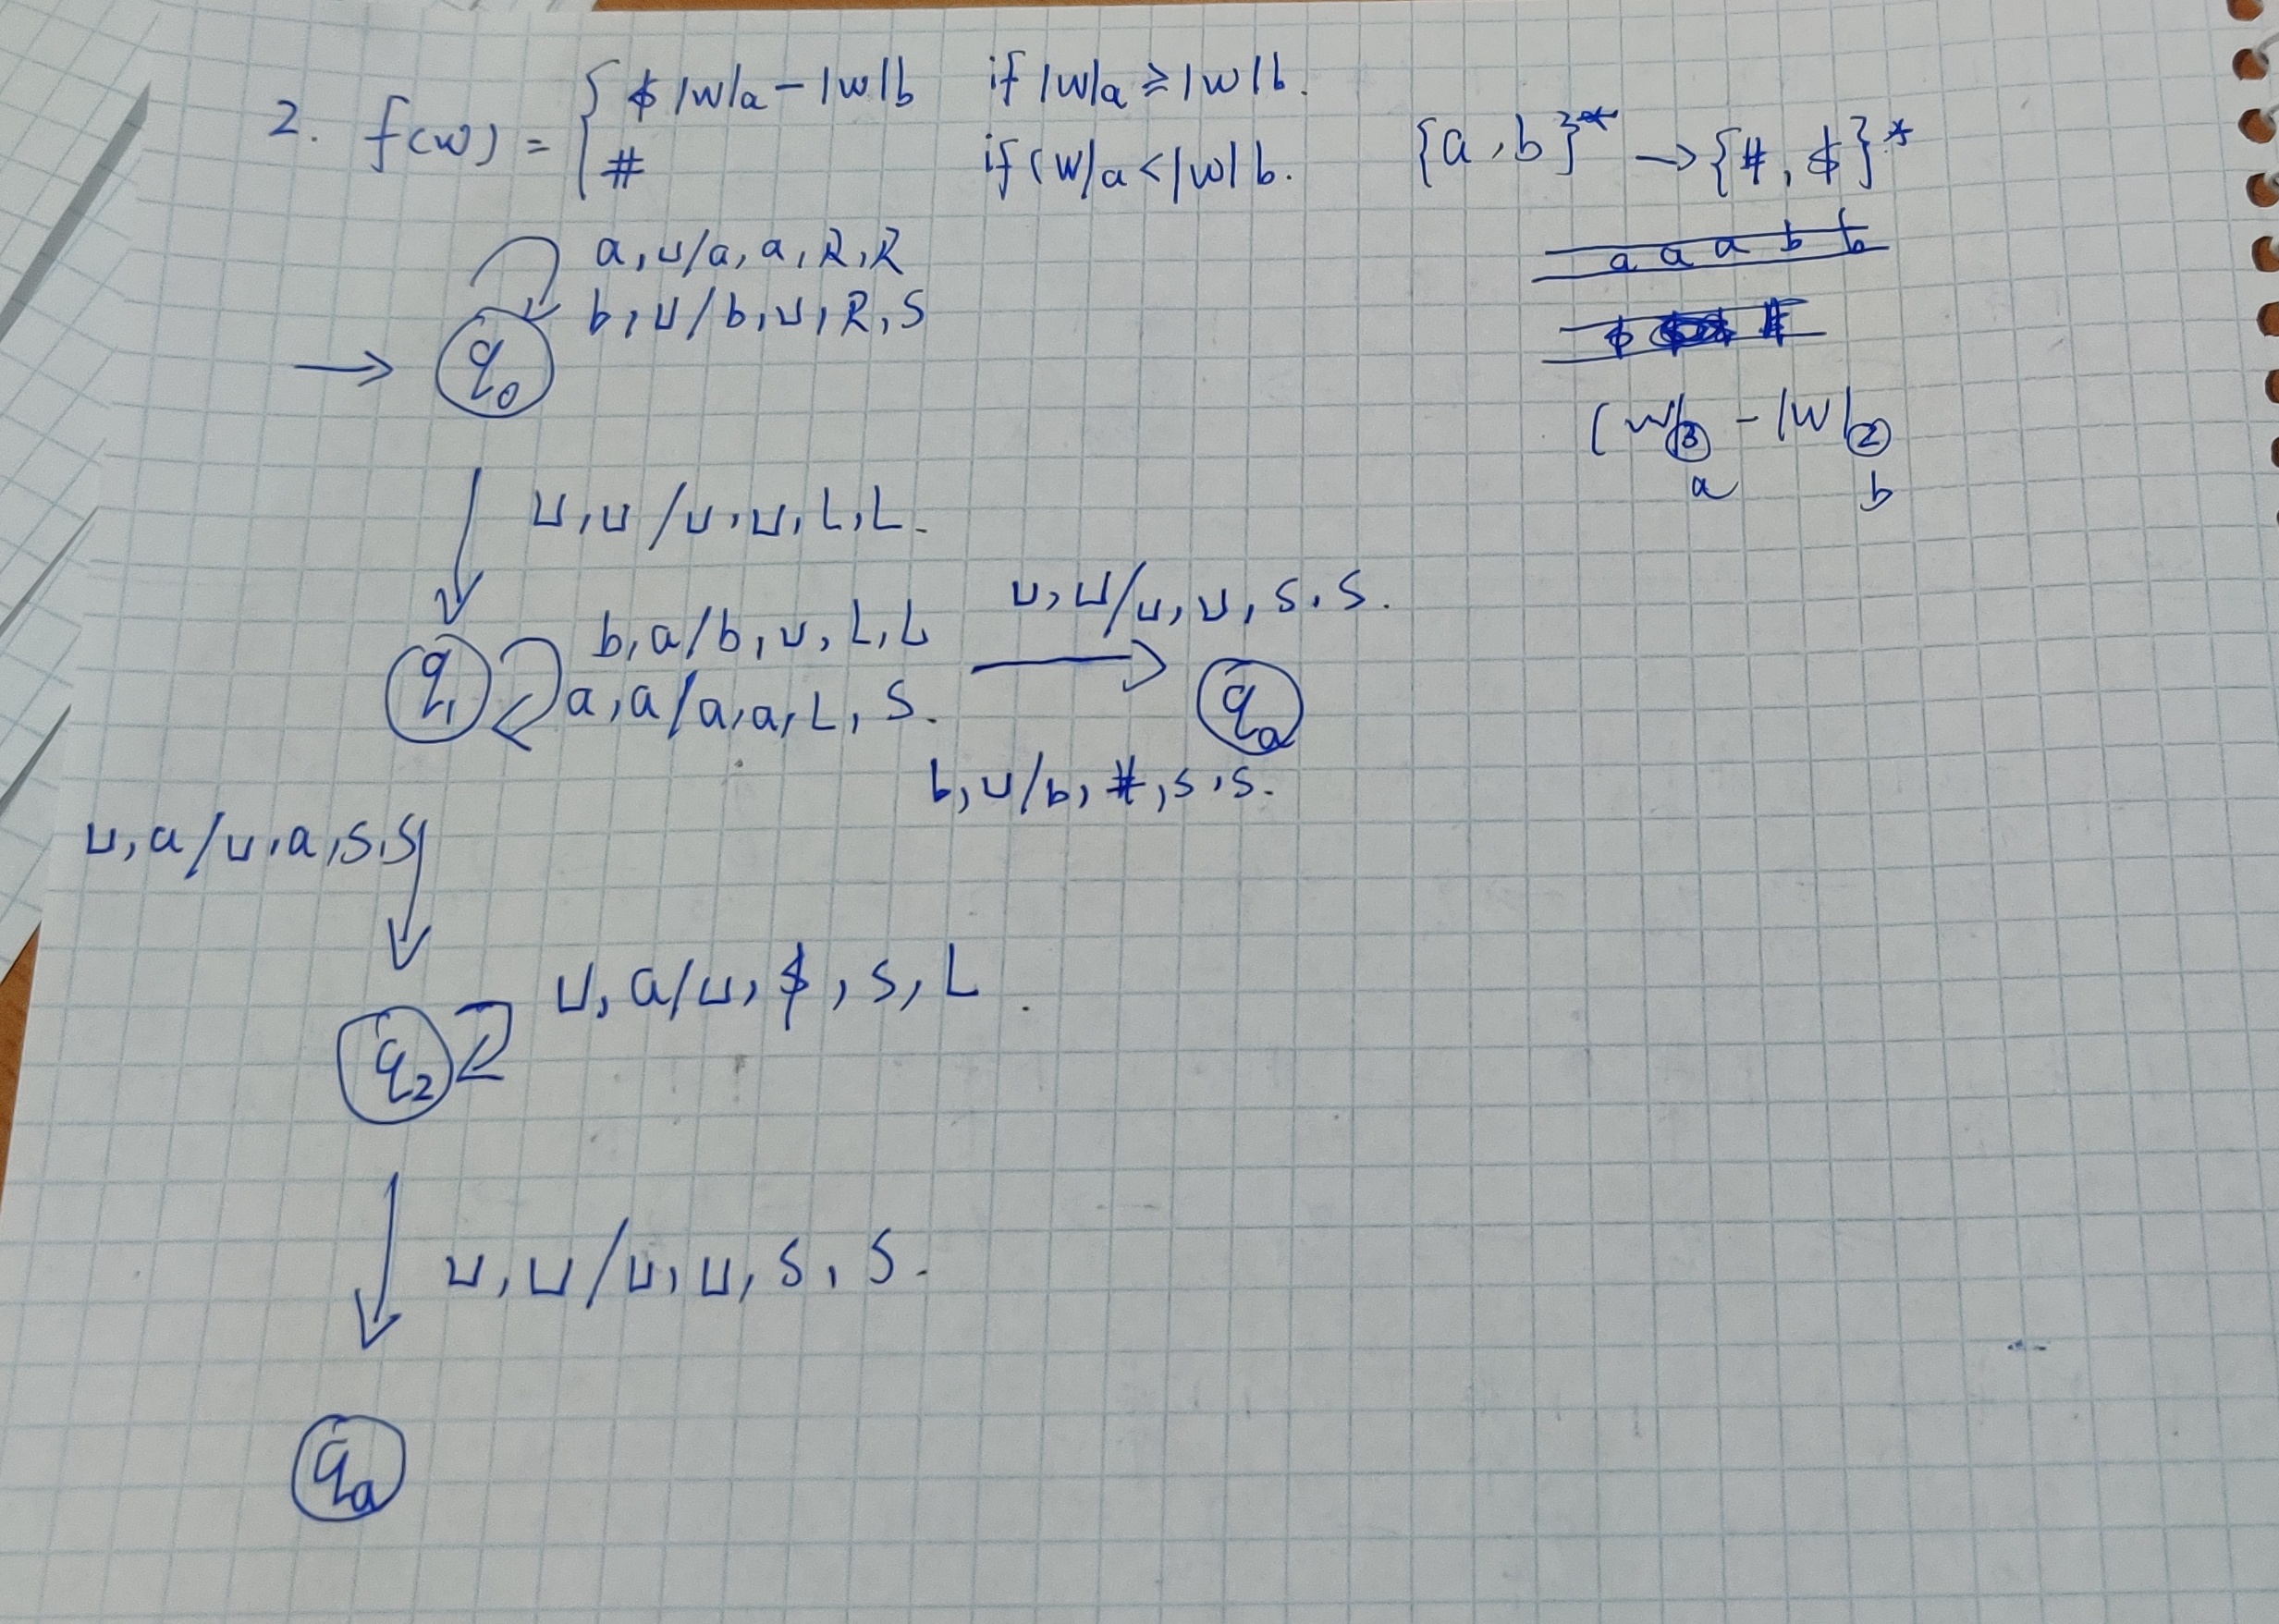 2. f(w) = { $ |w|a - |w|b if |w|a ≥ |w|b.
# if |w|a < |w|b.
{a, b}* → {#, $}*
a a a b b
$ #
|w|③ - |w|②
a b
a, ⊔/a, a, R, R
b, ⊔/b, ⊔, R, S
→ q₀
⊔, ⊔/⊔, ⊔, L, L.
⊔, ⊔/⊔, ⊔, S, S.
q₁ b, a/b, ⊔, L, L
a, a/a, a, L, S. qa
b, ⊔/b, #, S, S.
⊔, a/⊔, a, S, S
⊔, a/⊔, $, S, L.
q₂
⊔, ⊔/⊔, ⊔, S, S.
qa